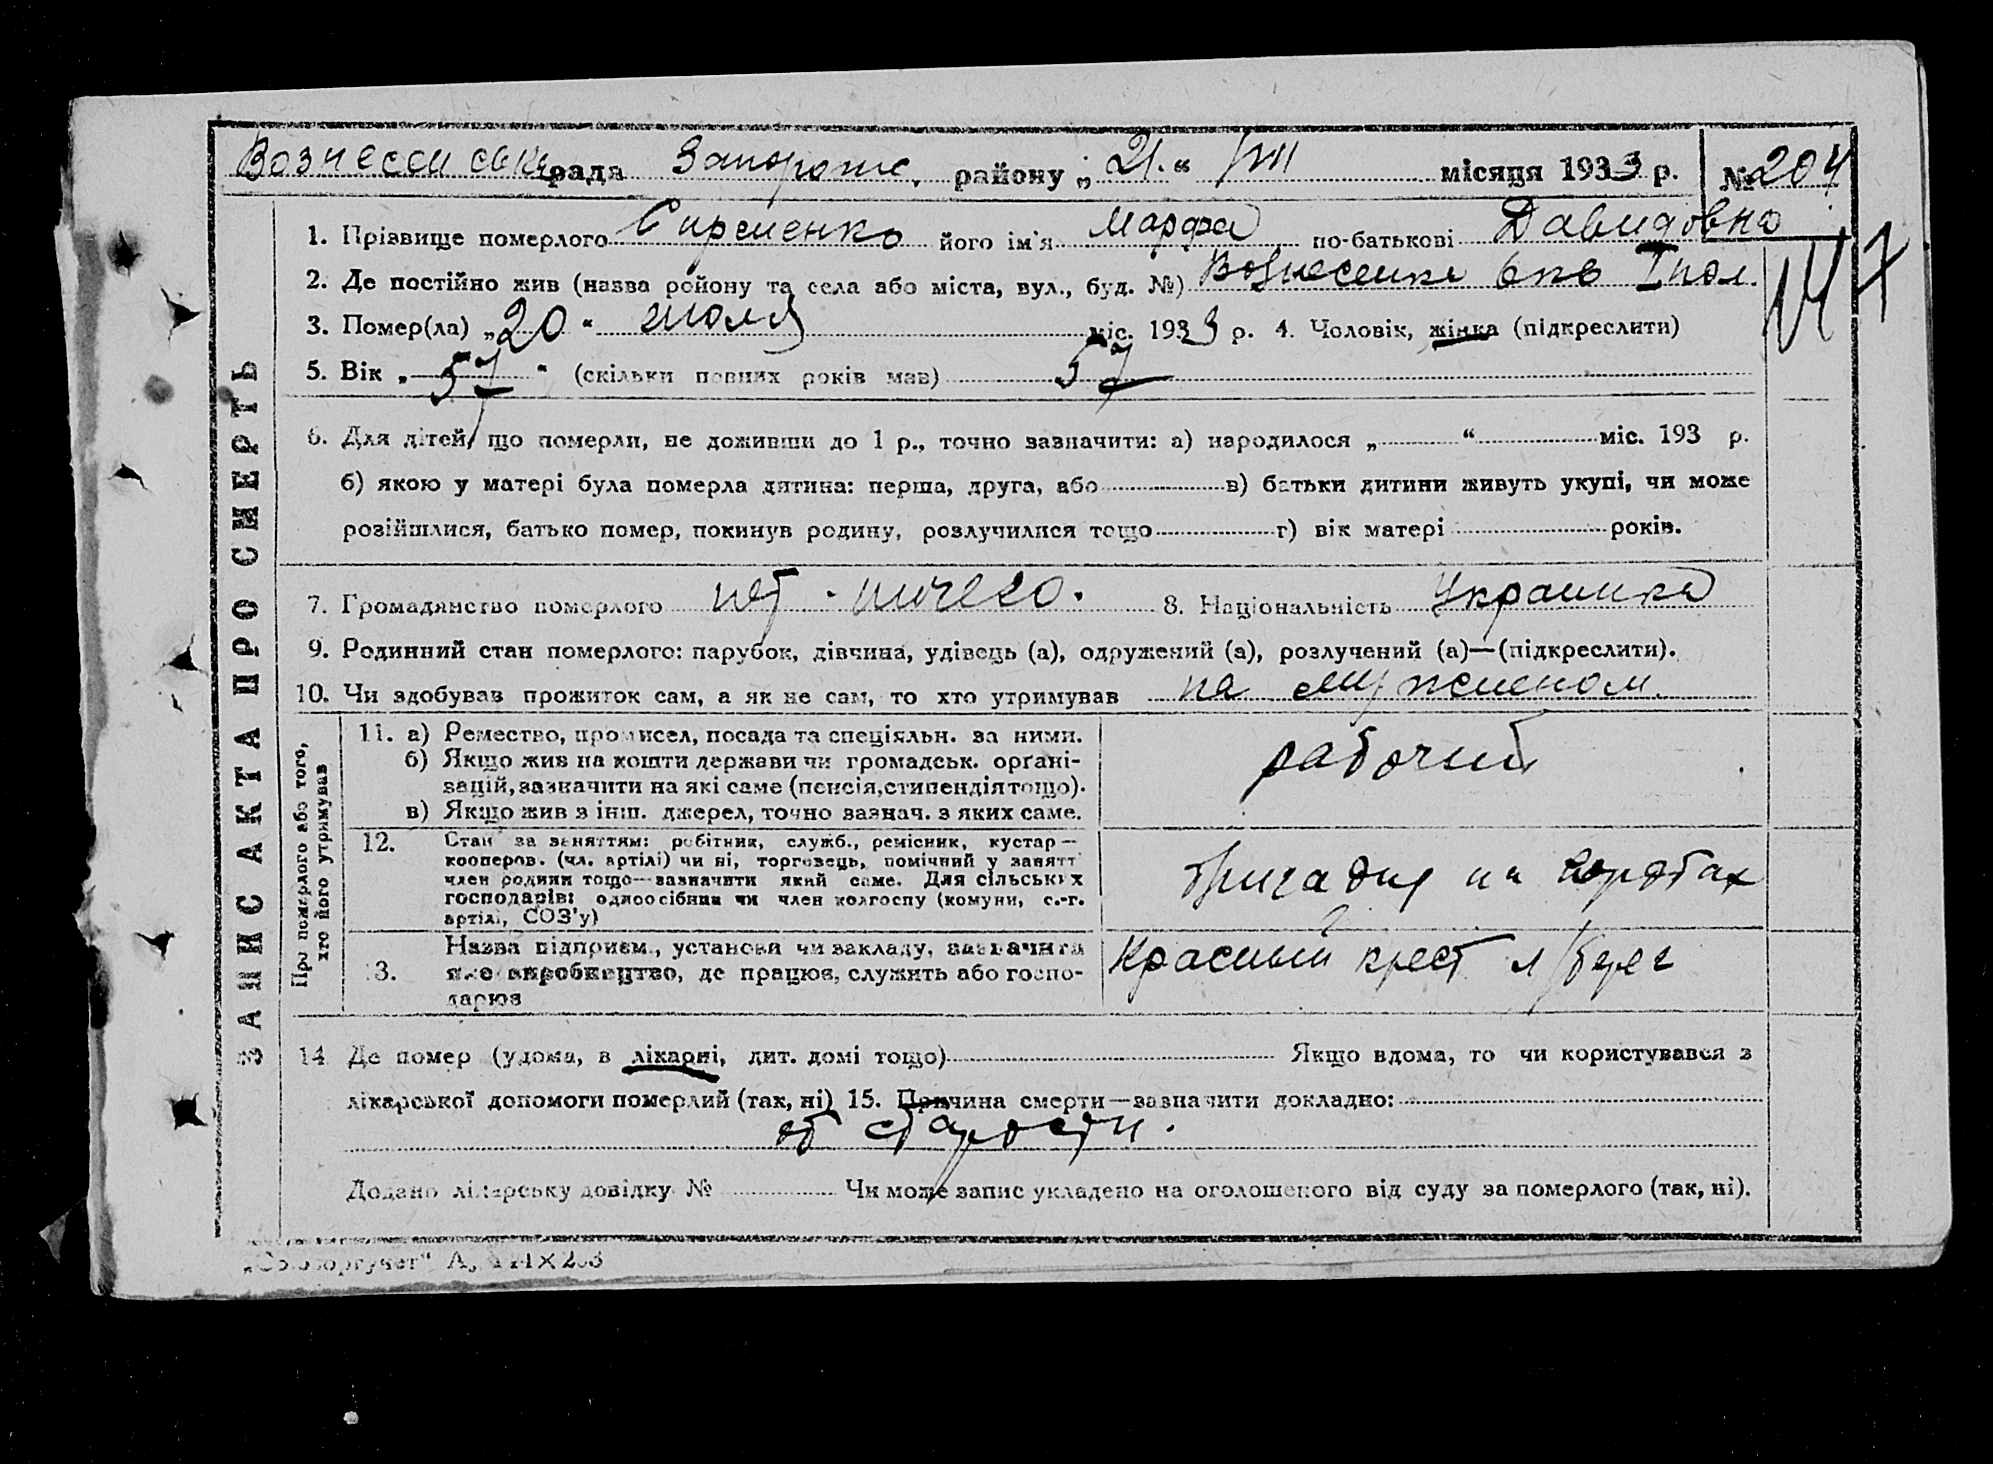 Вознесенська рада Запорожс. району „21.“ VII місяця 1933 р. № 204
1. Прізвище померлого його ім'я Марфа по-батькові Давидовна
147
2. Де постійно жив (назва району та села або міста, вул., буд. №) Вознесенка 6 кв I пол.
3. Помер(ла) „20“ июля міс. 1933 р. 4. Чоловік, жінка (підкреслити)
5. Вік „57“ (скільки повних років мав) 57
6. Для дітей, що померли, не доживши до 1 р., точно зазначити: а) народилося „ “ міс. 193 р.
б) якою у матері була померла дитина: перша, друга, або в) батьки дитини живуть укупі, чи може
розійшлися, батько помер, покинув родину, розлучилися тощо г) вік матері років.
7. Громадянство померлого нет. ничего. 8. Національність Украинка
9. Родинний стан померлого: парубок, дівчина, удівець (а), одружений (а), розлучений (а)—(підкреслити).
10. Чи здобував прожиток сам, а як не сам, то хто утримував на
ЗАПИС АКТА ПРО СМЕРТЬ
Про померлого або того,
хто його утримував
11. а) Ремество, промисел, посада та спеціяльн. за ними.
б) Якщо жив на кошти держави чи громадськ. орґані-
зацій, зазначити на які саме (пенсія, стипендія тощо).
в) Якщо жив з інш. джерел, точно зазнач. з яких саме.
рабочий
12. Стан за заняттям: робітник, служб., ремісник, кустар—
кооперов. (чл. артілі) чи ні, торговець, помічний у занятт
член родини тощо—зазначити який саме. Для сільських
господарів: одноосібник чи член колгоспу (комуни, с.-г.
артілі, СОЗ'у)
на
13. Назва підприєм., установи чи закладу, зазначити
яке виробництво, де працюв, служить або госпо-
дарюв
Красный крест л/берег
14 Де помер (удома, в лікарні, дит. домі тощо) Якщо вдома, то чи користувався з
лікарської допомоги померлий (так, ні) 15. Причина смерти—зазначити докладно:
от старости.
Додано лікарську довідку № Чи може запис укладено на оголошеного від суду за померлого (так, ні).